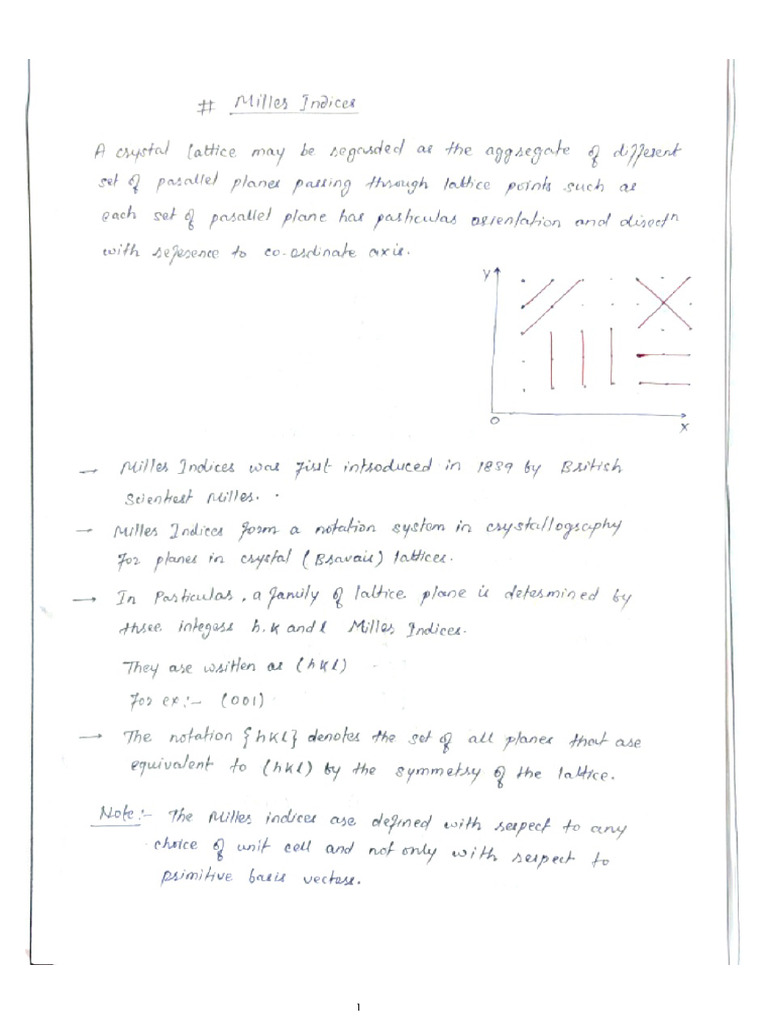 # Miller Indices
A crystal lattice may be regarded as the aggregate of different
set of parallel planes passing through lattice points such as
each set of parallel plane has particular orientation and directⁿ
with reference to co-ordinate axis.
Y
O
X
→ Miller Indices was first introduced in 1839 by British
Scientest Miller.
→ Miller Indices form a notation system in crystallography
for planes in crystal (Bravais) lattices.
→ In Particular, a family of lattice plane is determined by
three integers h, k and l Miller Indices.
They are written as (hkl)
For ex:- (001)
→ The notation {hkl} denotes the set of all planes that are
equivalent to (hkl) by the symmetry of the lattice.
Note:- The Miller indices are defined with respect to any
choice of unit cell and not only with respect to
primitive basis vectors.
1